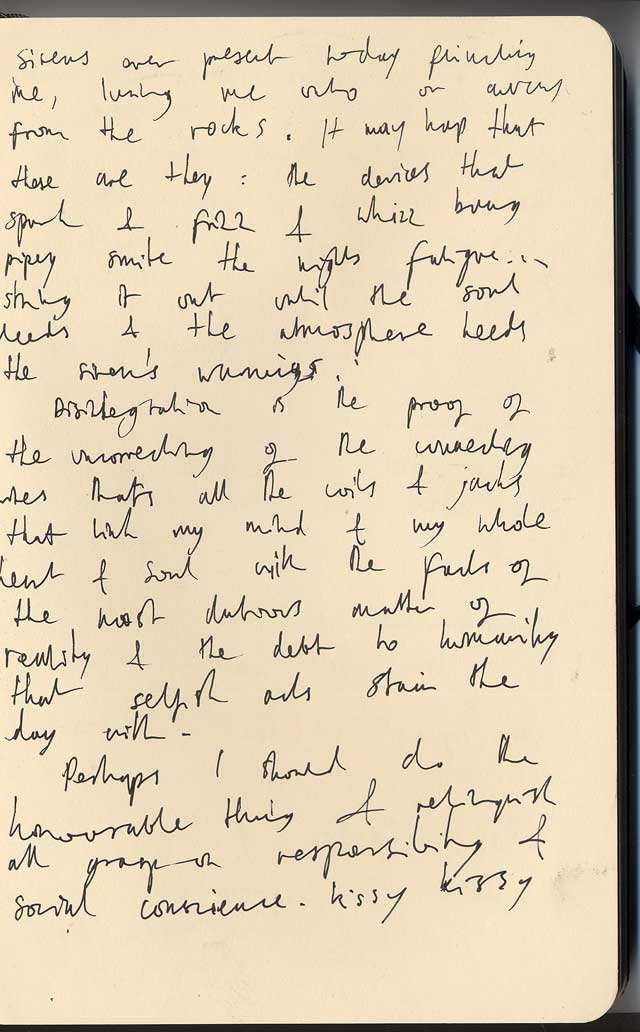 sirens ever present today
me, luring me onto or
from the rocks. It may hap that
these are they: the devices that
& fizz & whizz bang
smite the nights fatigue...
string it out until the soul
& the atmosphere heeds
the siren's warnings.
Disintegration is the proof of
the unconnecting of the connecting
that's all the coils & jacks
that link my mind & my whole
heart & soul with the fads of
the most dubious matter of
reality & the debt to humanity
that selfish acts stain the
day with -
Perhaps I should do the
honourable thing & relinquish
all grasp on responsibility &
social conscience. kissy kissy